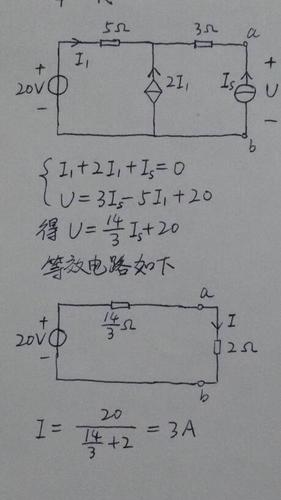 5Ω 3Ω a
I₁ + 
20V 2I₁ Iₛ U
b
I₁+2I₁+Iₛ=0
U=3Iₛ-5I₁+20
得 U=14/3 Iₛ+20
等效电路如下
a
14/3 Ω I
20V 2Ω
b
I = 20/(14/3+2) = 3A